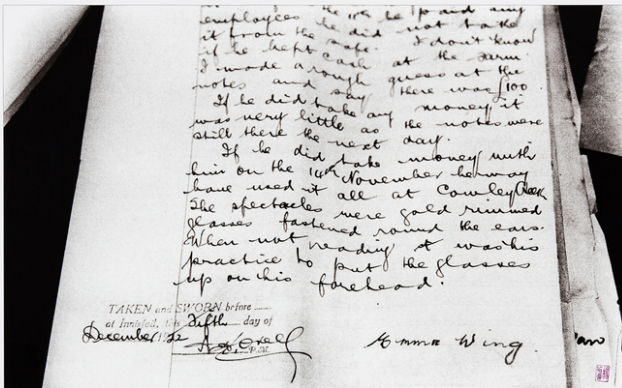 employees he did not take
it from the safe. I don't know
if he kept cash at the farm
I made a rough guess at the
notes and say there was £100
If he did take any money, it
was very little as the notes were
still there the next day.
If he did take money with
him on the 14th November he may
have used it all at Cowley Creek
The spectacles were gold rimmed
glasses fastened round the ears.
When not reading it was his
practice to put the glasses
up on his forehead.
TAKEN and SWORN before
at Innisfail, this Fifth day of
December 1922
P.M.
Emma Wing.